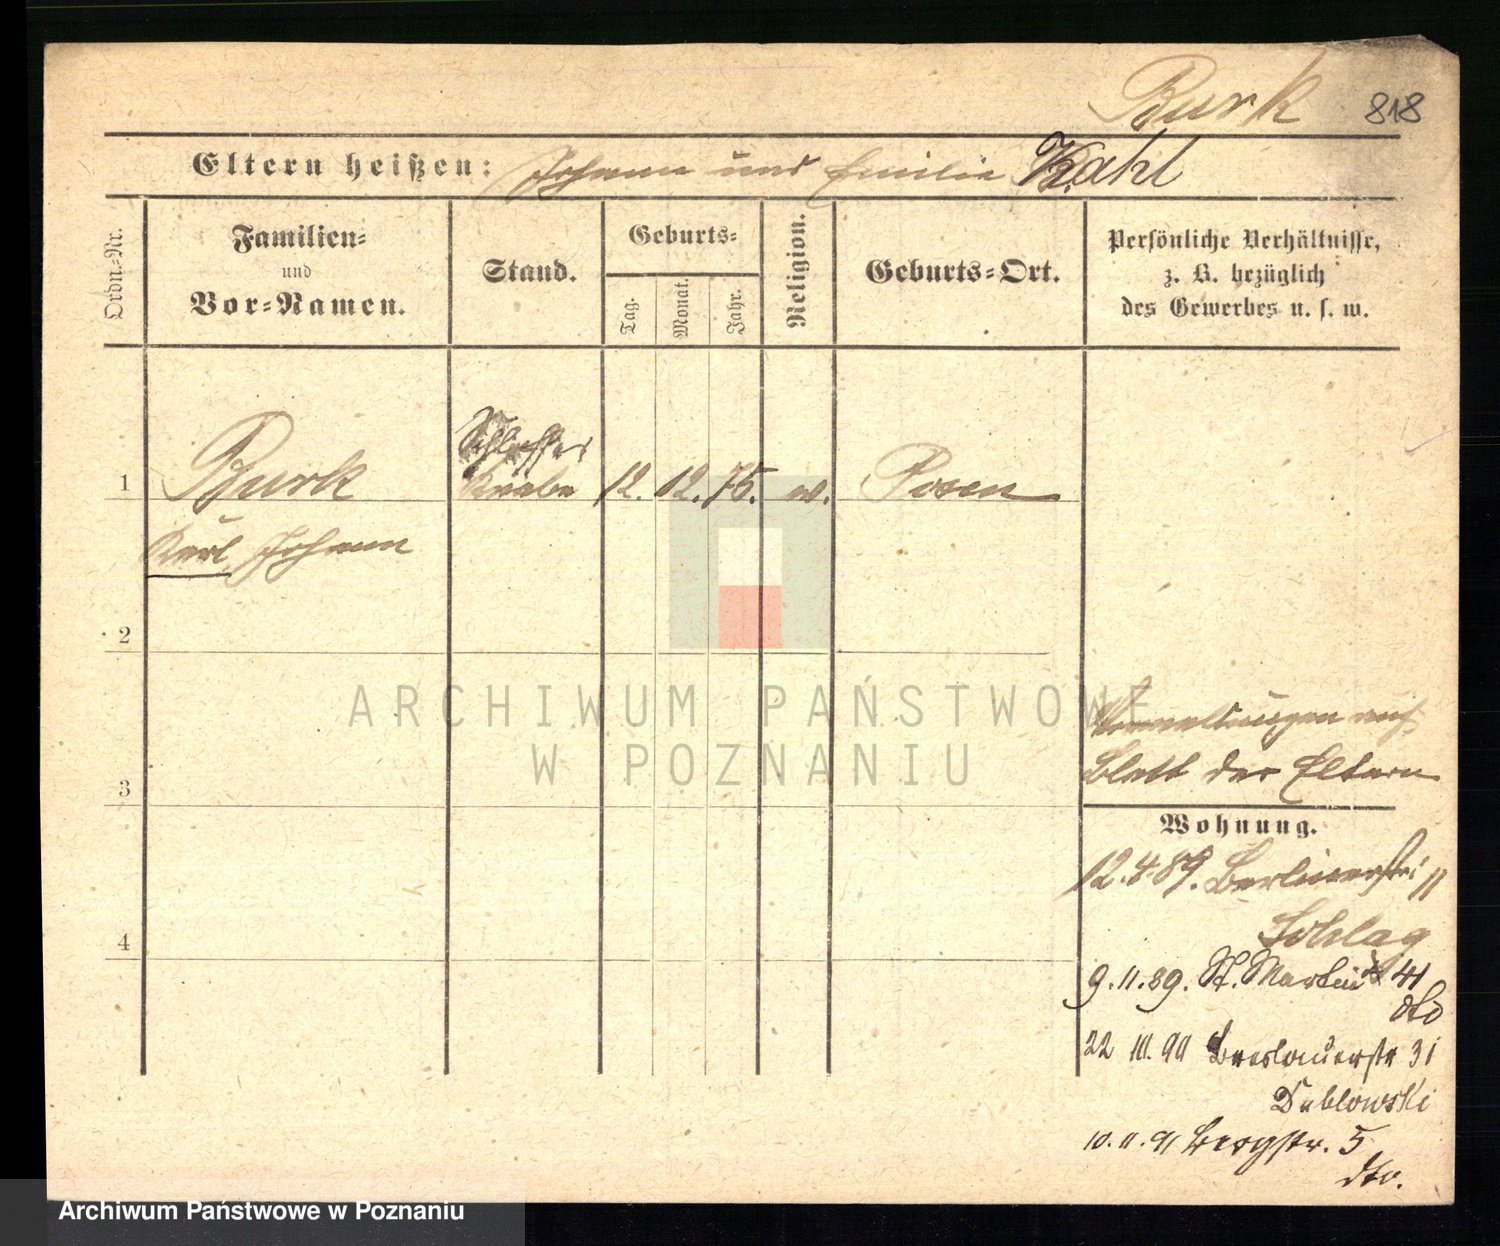 Burk 818
Eltern heißen: Johann und Emilie Kahl
Ordn.-Nr.
Familien-
und
Vor-Namen.
Stand.
Geburts-
Tag.
Monat.
Jahr.
Religion.
Geburts-Ort.
Persönliche Verhältnisse,
z. B. bezüglich
des Gewerbes u. s. w.
Schlosser
1 Burk Knabe 12. 12. 75. Posen
Karl Johann
2
3
4
auf
Blatt der Eltern
Wohnung.
12.4.89. Berlinerstr. 11
Schlag
9.11.89. St. Martin 41
dto
22 10. 90 Breslauerstr 31
Dublowski
10.11.91 Bergstr. 5
dto.
ARCHIWUM PAŃSTWOWE
W POZNANIU
Archiwum Państwowe w Poznaniu